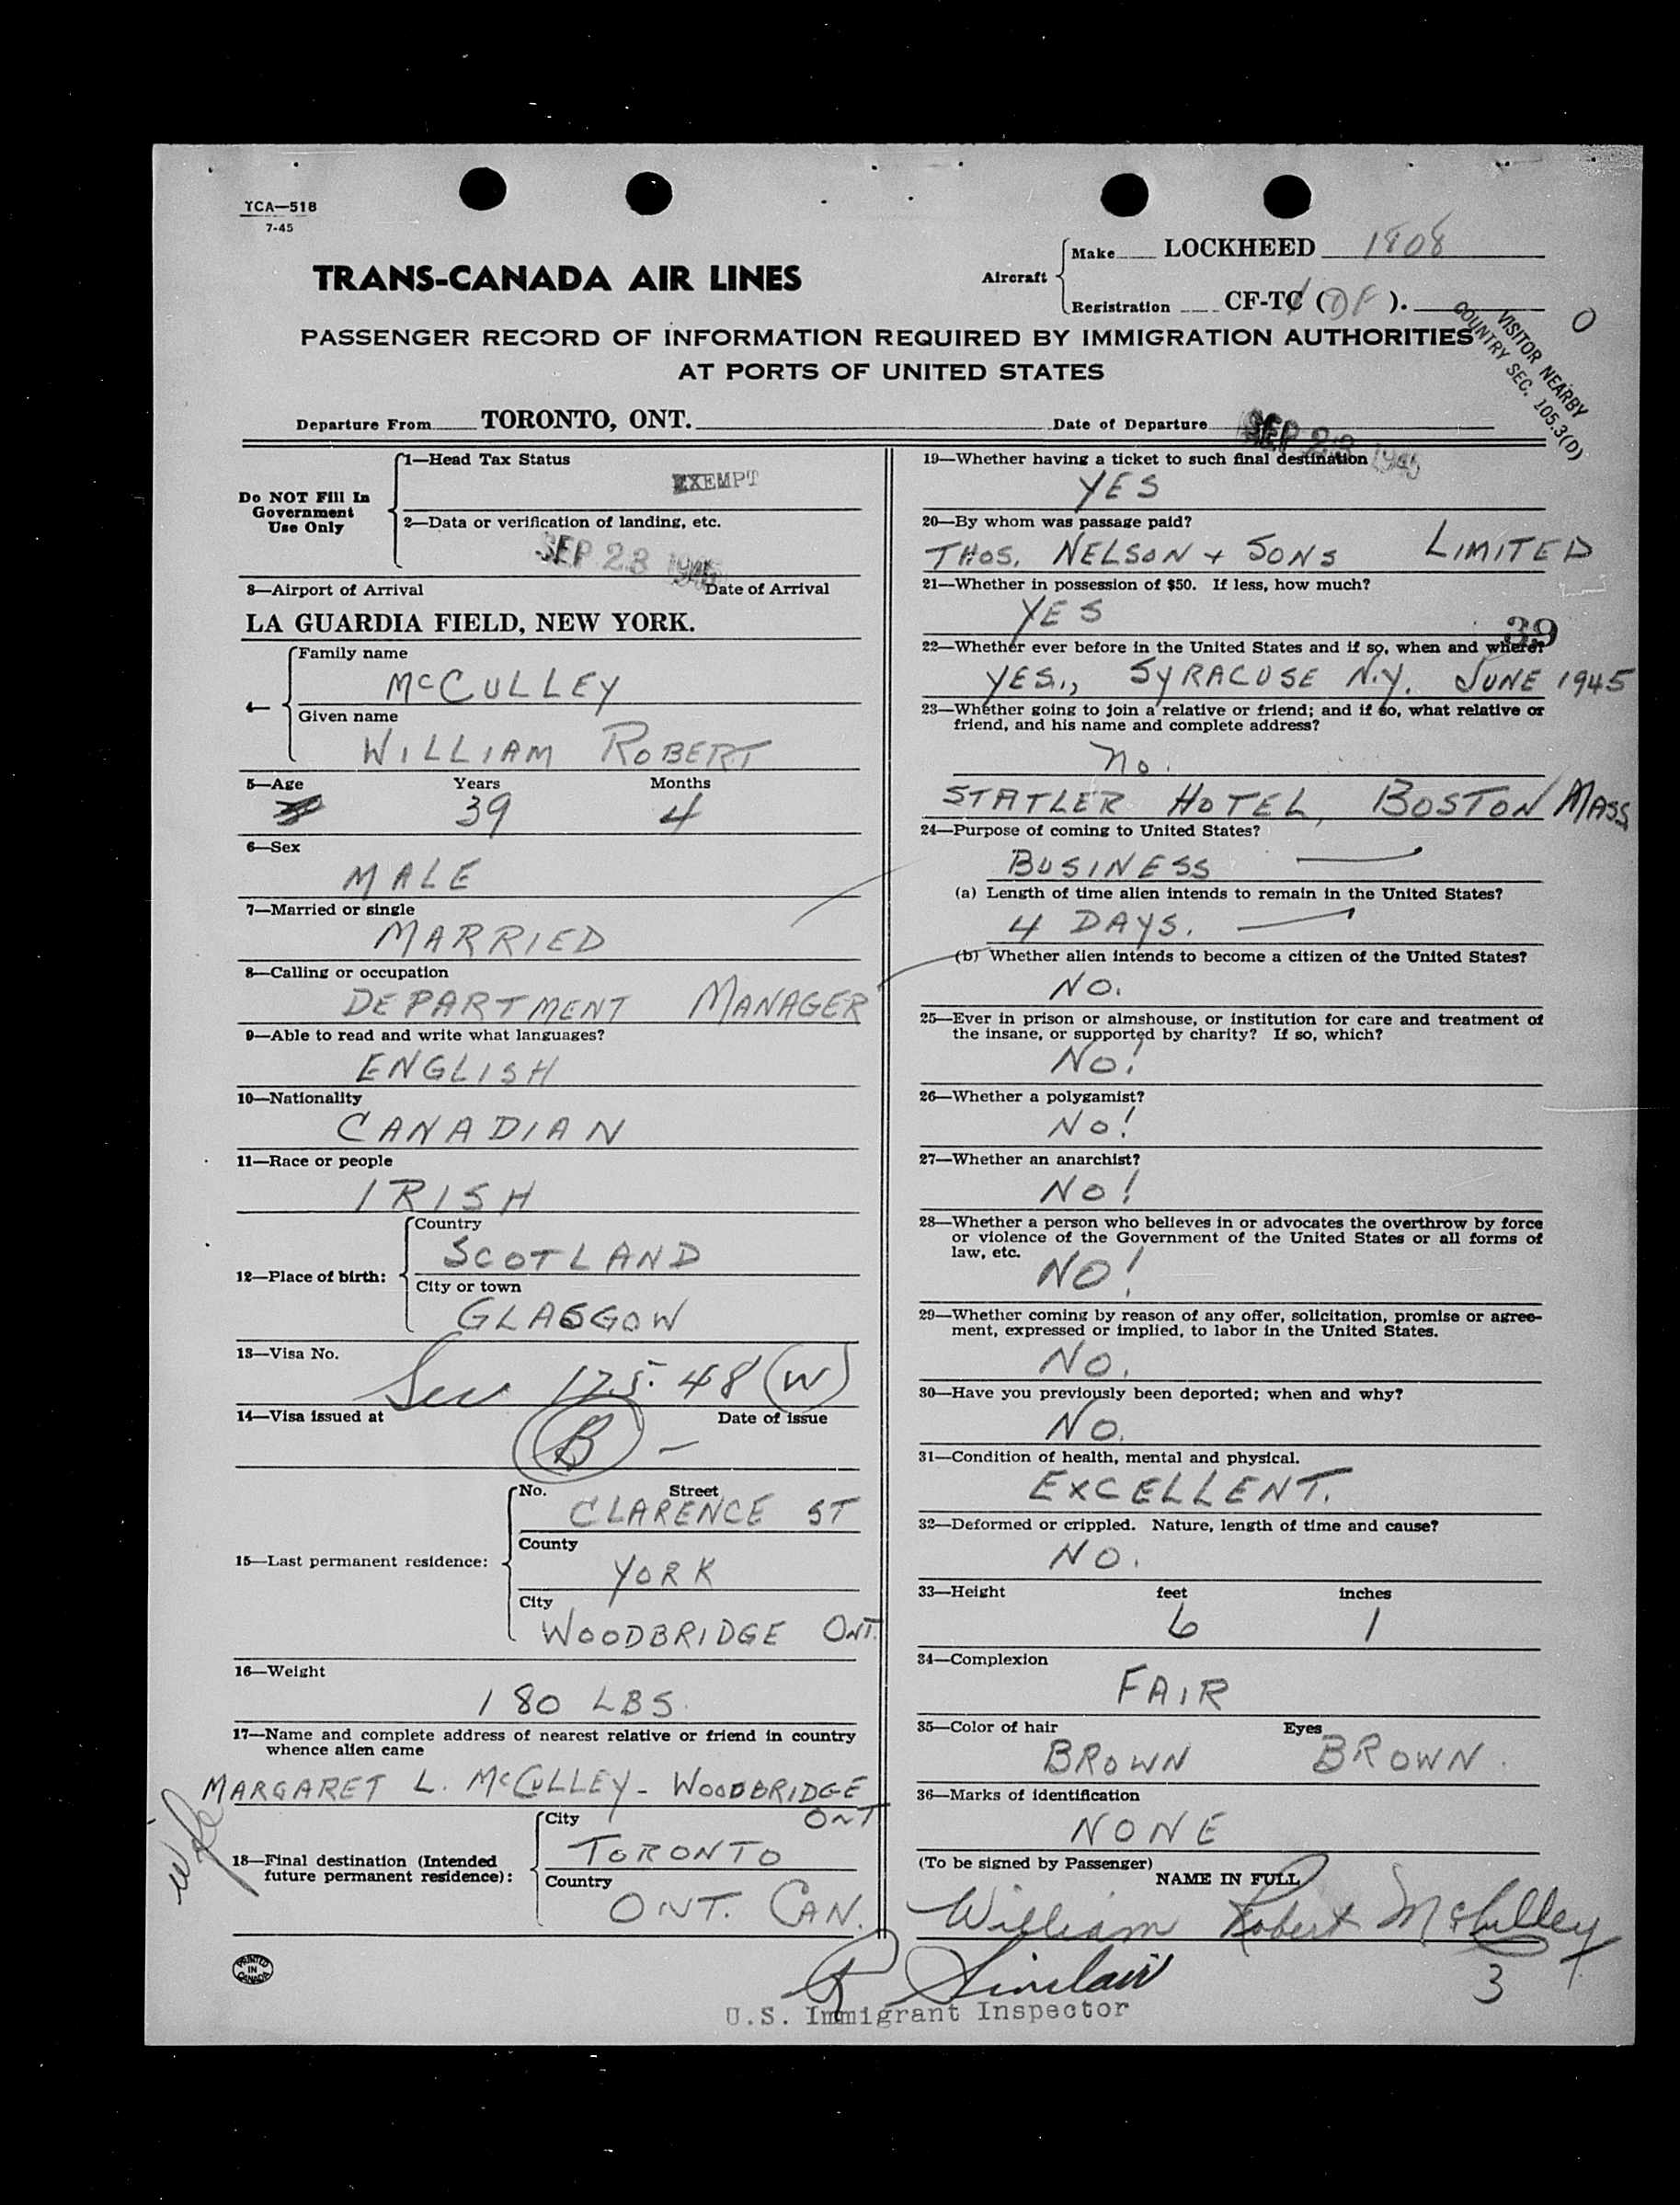 TCA—518
7-45
TRANS-CANADA AIR LINES
Aircraft
Make LOCKHEED 1808
Registration CF-TC (DF).
PASSENGER RECORD OF INFORMATION REQUIRED BY IMMIGRATION AUTHORITIES
AT PORTS OF UNITED STATES
VISITOR NEARBY
COUNTRY SEC. 105.3(D)
O
Departure From TORONTO, ONT.
Date of Departure SEP 23 1945
Do NOT Fill In
Government
Use Only
1—Head Tax Status
EXEMPT
2—Data or verification of landing, etc.
SEP 23 1945
3—Airport of Arrival Date of Arrival
LA GUARDIA FIELD, NEW YORK.
4—
Family name
McCULLEY
Given name
WILLIAM ROBERT
5—Age Years Months
39 4
6—Sex
MALE
7—Married or single
MARRIED
8—Calling or occupation
DEPARTMENT MANAGER
9—Able to read and write what languages?
ENGLISH
10—Nationality
CANADIAN
11—Race or people
IRISH
12—Place of birth:
Country
SCOTLAND
City or town
GLASGOW
13—Visa No.
Sec 175.48 (W)
14—Visa issued at Date of issue
B —
15—Last permanent residence:
No. Street
CLARENCE ST
County
YORK
City
WOODBRIDGE ONT.
16—Weight
180 LBS.
17—Name and complete address of nearest relative or friend in country
whence alien came
MARGARET L. McCULLEY - WOODBRIDGE
ONT
wife
18—Final destination (Intended
future permanent residence):
City
TORONTO
Country
ONT. CAN.
19—Whether having a ticket to such final destination
YES
20—By whom was passage paid?
THOS. NELSON + SONS LIMITED
21—Whether in possession of $50. If less, how much?
YES
39
22—Whether ever before in the United States and if so, when and where?
YES., SYRACUSE N.Y. JUNE 1945
23—Whether going to join a relative or friend; and if so, what relative or
friend, and his name and complete address?
No.
STATLER HOTEL, BOSTON MASS
24—Purpose of coming to United States?
BUSINESS
(a) Length of time alien intends to remain in the United States?
4 DAYS.
(b) Whether alien intends to become a citizen of the United States?
NO.
25—Ever in prison or almshouse, or institution for care and treatment of
the insane, or supported by charity? If so, which?
NO!
26—Whether a polygamist?
No!
27—Whether an anarchist?
No!
28—Whether a person who believes in or advocates the overthrow by force
or violence of the Government of the United States or all forms of
law, etc.
NO!
29—Whether coming by reason of any offer, solicitation, promise or agree-
ment, expressed or implied, to labor in the United States.
NO.
30—Have you previously been deported; when and why?
NO.
31—Condition of health, mental and physical.
EXCELLENT.
32—Deformed or crippled. Nature, length of time and cause?
NO.
33—Height feet inches
6 1
34—Complexion
FAIR
35—Color of hair Eyes
BROWN BROWN.
36—Marks of identification
NONE
(To be signed by Passenger)
NAME IN FULL
William Robert McCulley
3
R Sinclair
U.S. Immigrant Inspector
PRINTED
IN
CANADA